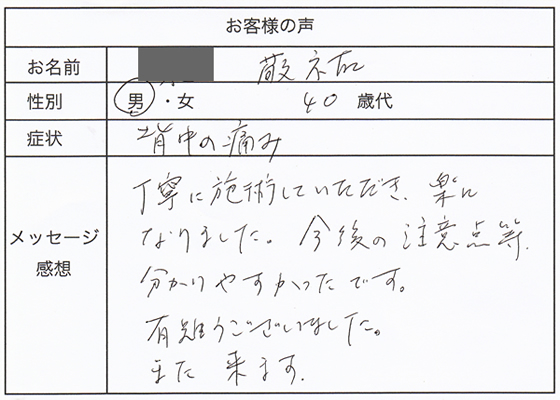 お客様の声
お名前 敬祐
性別 男・女 40 歳代
症状 背中の痛み
メッセージ
感想
丁寧に施術していただき、楽に
なりました。今後の注意点等、
分かりやすかったです。
有難うございました。
また来ます。